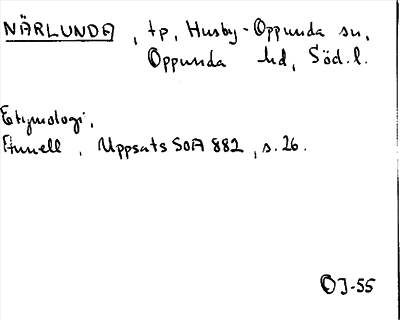 NÄRLUNDA, tp, Husby-Oppunda sn,
Oppunda hd, Söd.l.
Etymologi,
Ennell, Uppsats SOA 882, s. 26.
OJ-55